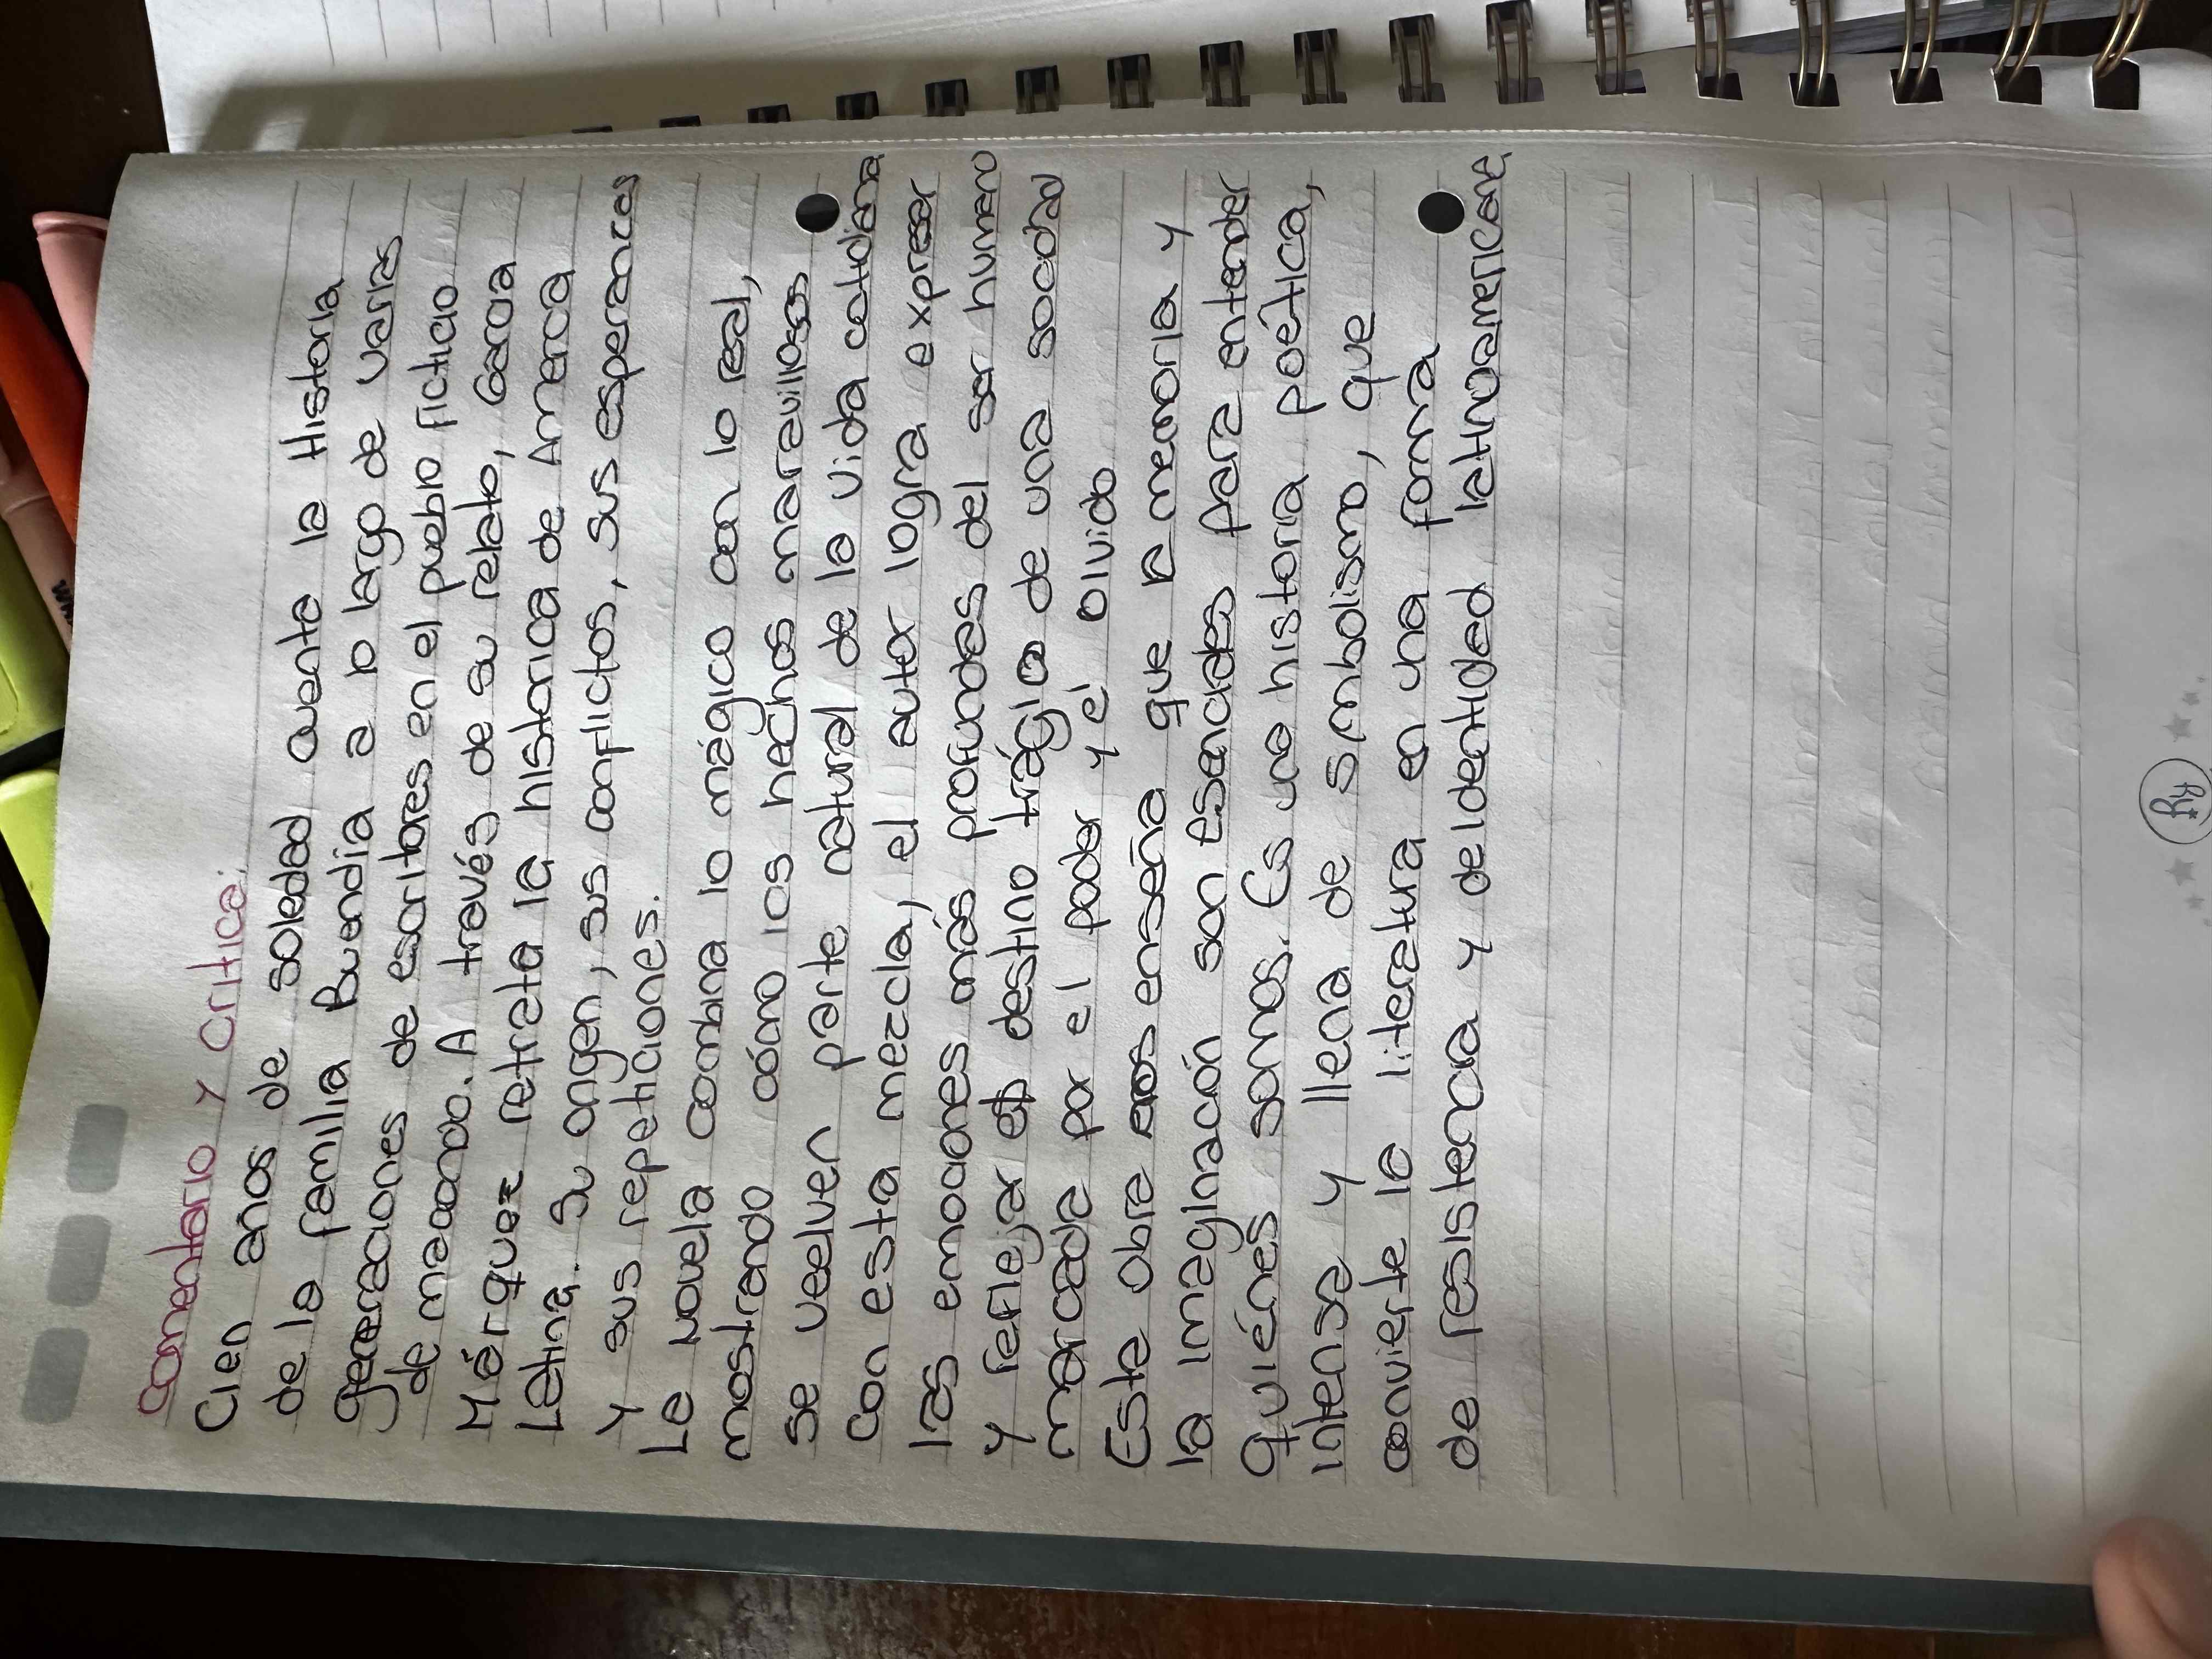 comentario y crítica:
Cien años de soledad cuenta la Historia
de la familia Buendía a lo largo de varias
generaciones de escritores en el pueblo ficticio
de macondo. A través de su relato, García
Márquez retrata la historica de America
Latina. Su origen, sus conflictos, sus esperanzas
Y sus repeticiones.
La novela combina lo mágico con lo real,
mostrando cómo los hechos maravillosos
se vuelven parte natural de la vida cotidiana
Con esta mezcla, el autor logra expresar
las emociones más profundas del ser humano
y reflejar el destino trágico de una sociedad
marcada por el poder y el olvido
Esta obra nos enseña que la memoria y
la imaginación son esenciales para entender
quiénes somos. Es una historia poética,
intensa y llena de simbolismo, que
convierte la literatura en una forma
de resistencia y de identidad latinoamericana
ky